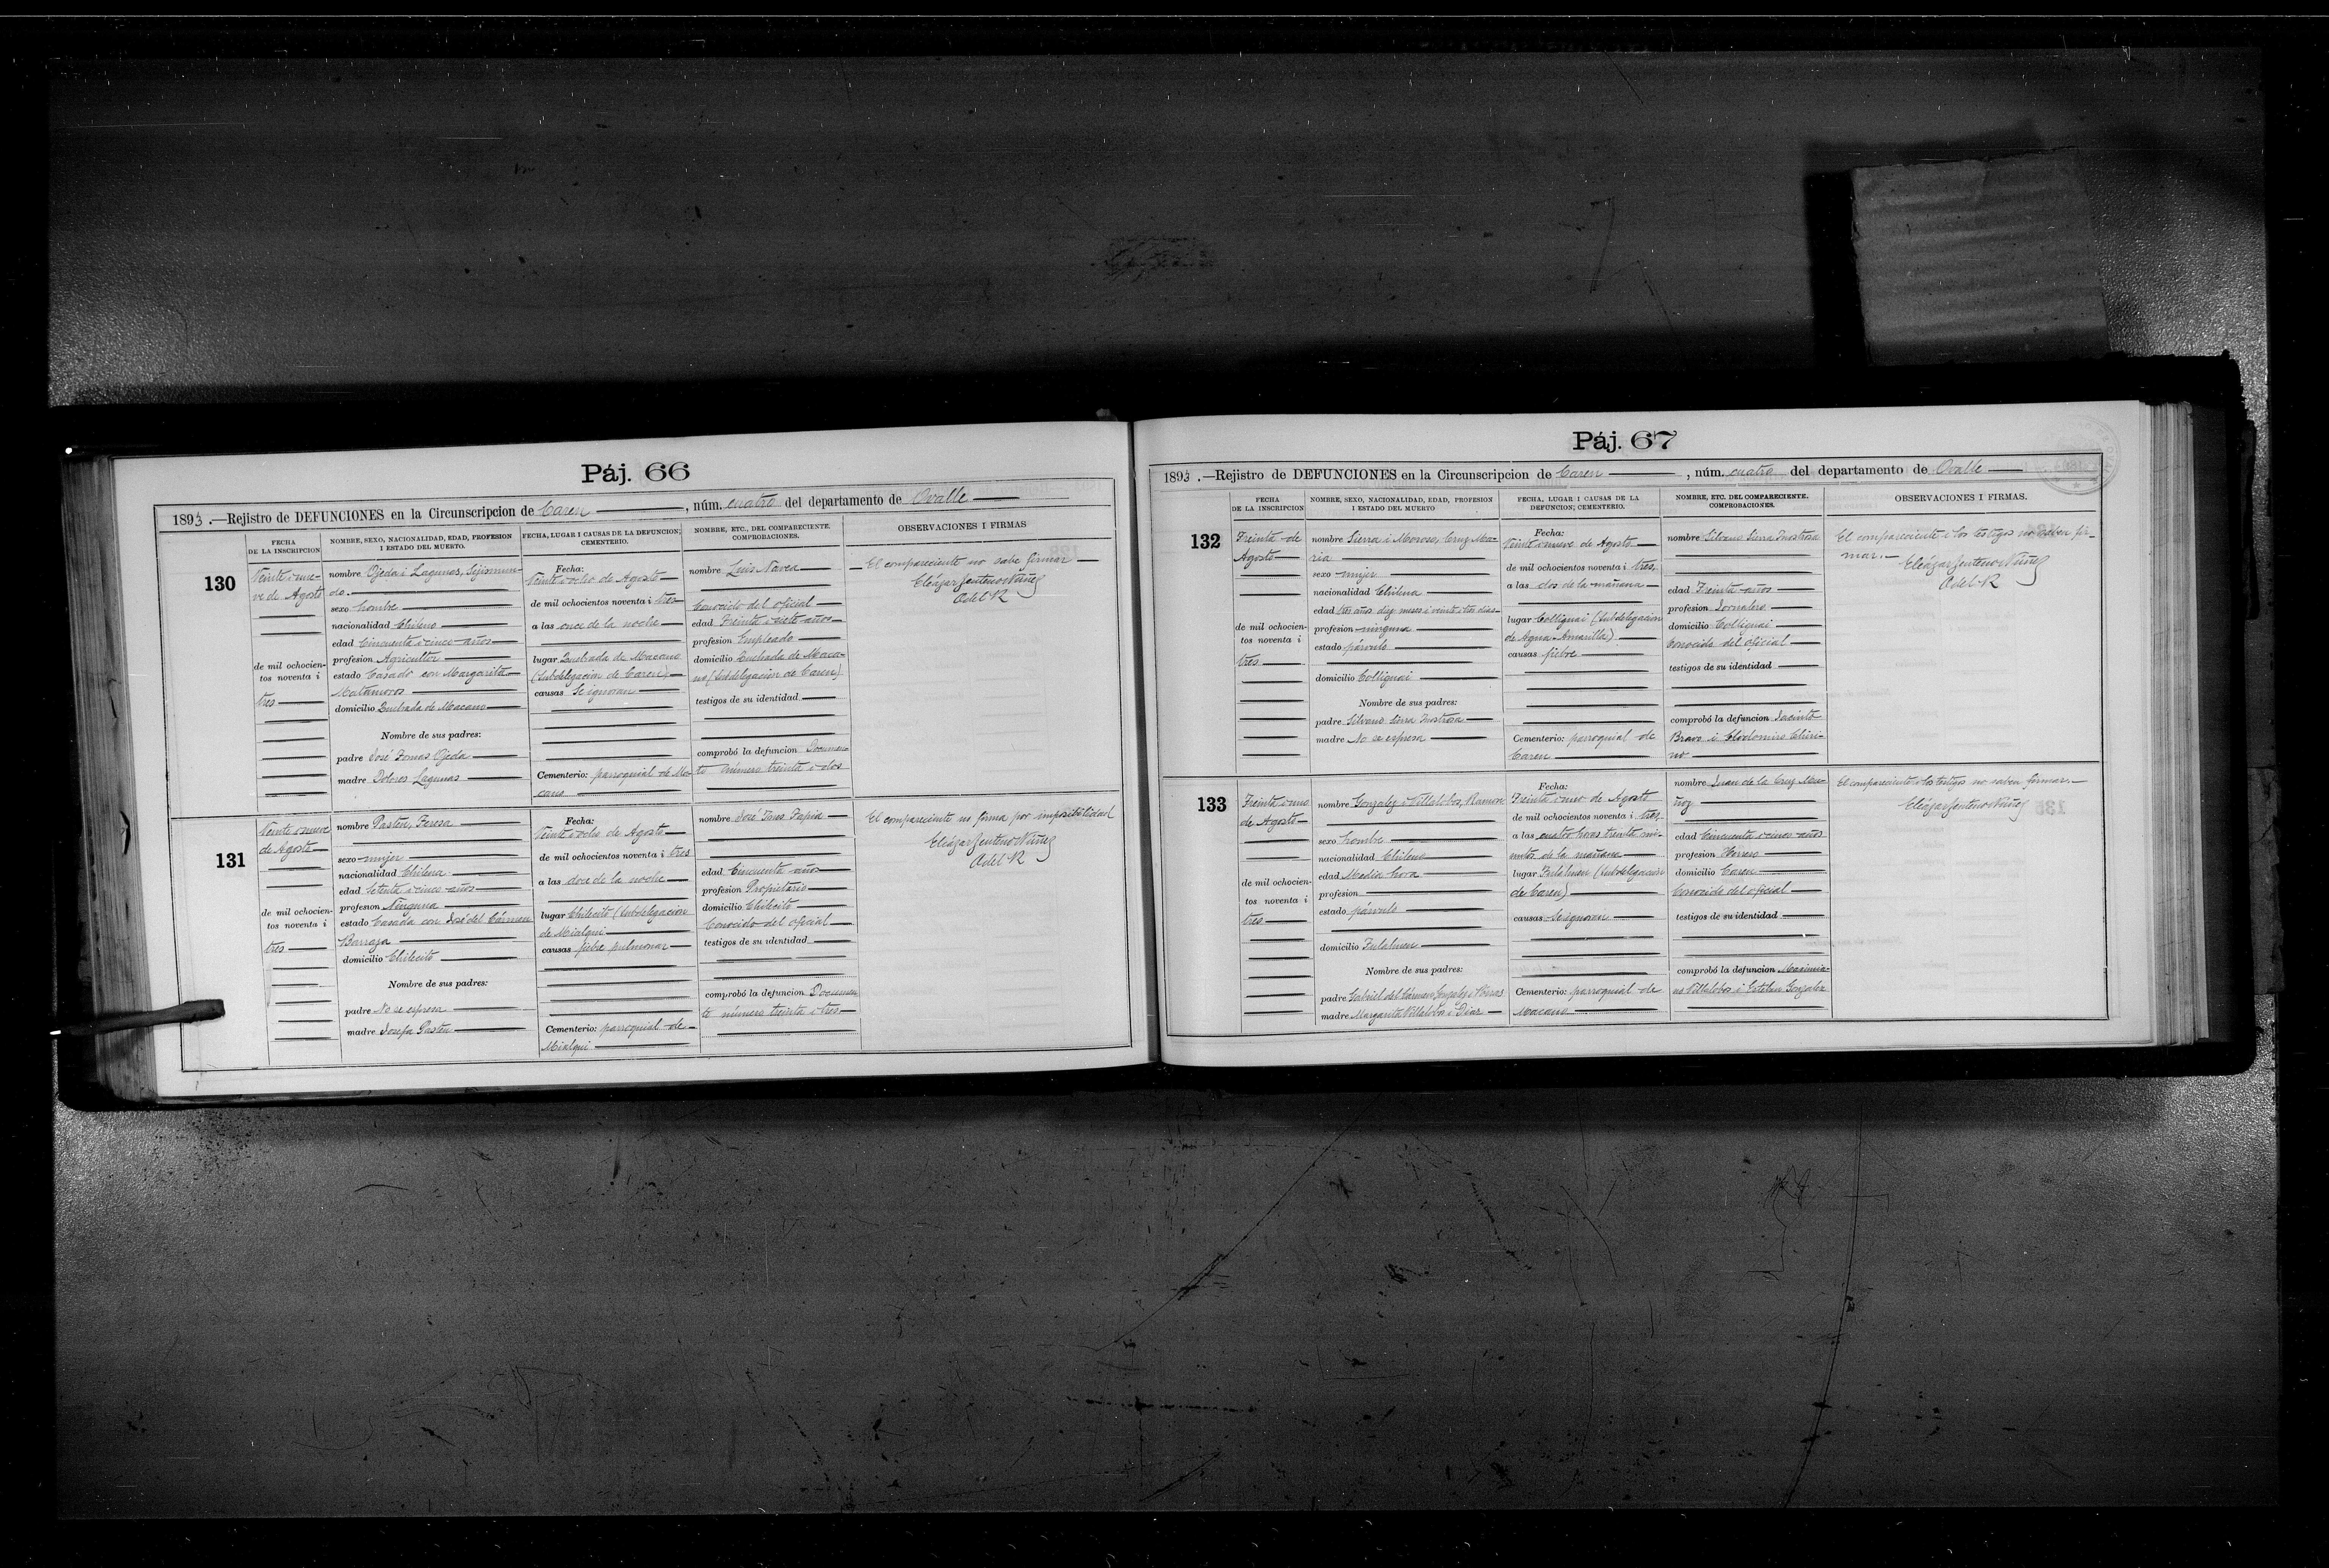 Páj. 66
1893.—Rejistro de DEFUNCIONES en la Circunscripcion de Caren, núm. cuatro del departamento de Ovalle
FECHA
DE LA INSCRIPCION
NOMBRE, SEXO, NACIONALIDAD, EDAD, PROFESION
I ESTADO DEL MUERTO.
FECHA, LUGAR I CAUSAS DE LA DEFUNCION;
CEMENTERIO.
NOMBRE, ETC., DEL COMPARECIENTE.
COMPROBACIONES.
OBSERVACIONES I FIRMAS
130
Veinte i nue-
ve de Agosto
de mil ochocien-
tos noventa i
tres
nombre Ojeda i Lagunas, Sijismun-
do.
sexo hombre
nacionalidad Chileno
edad Cincuenta i cinco años
profesion Agricultor
estado Casado con Margarita
Matamoros
domicilio Quebrada de Macano
Nombre de sus padres:
padre José Tomas Ojeda
madre Dolores Lagunas
Fecha:
Veinte i ocho de Agosto
de mil ochocientos noventa i tres
a las once de la noche
lugar Quebrada de Macano
(Subdelegacion de Caren)
causas Se ignoran
Cementerio: parroquial de Ma-
cano
nombre Luis Navea
Conocido del oficial
edad Treinta i siete años
profesion Empleado
domicilio Quebrada de Maca-
no (Subdelegacion de Caren)
testigos de su identidad
comprobó la defuncion Documen-
to número treinta i dos
El compareciente no sabe firmar
Eleázar Zenteno Núñez
O del R
131
Veinte i nueve
de Agosto
de mil ochocien-
tos noventa i
tres
nombre Pasten, Teresa
sexo mujer
nacionalidad Chilena
edad Setenta i cinco años
profesion Ninguna
estado Casada con José del Cármen
Barraza
domicilio Chilecito
Nombre de sus padres:
padre No se espresa
madre Josefa Pasten
Fecha:
Veinte i ocho de Agosto
de mil ochocientos noventa i tres
a las doce de la noche
lugar Chilecito (Subdelegacion
de Mialqui
causas fiebre pulmonar
Cementerio: parroquial de
Mialqui
nombre José Tapia
edad Cincuenta años
profesion Propietario
domicilio Chilecito
Conocido del oficial
testigos de su identidad
comprobó la defuncion Documen
to número treinta i tres
El compareciente no firma por imposibilidad
Eleázar Zenteno Núñez
O del R
Páj. 67
1893.—Rejistro de DEFUNCIONES en la Circunscripcion de Caren, núm. cuatro del departamento de Ovalle
FECHA
DE LA INSCRIPCION
NOMBRE, SEXO, NACIONALIDAD, EDAD, PROFESION
I ESTADO DEL MUERTO
FECHA, LUGAR I CAUSAS DE LA
DEFUNCION; CEMENTERIO.
NOMBRE, ETC. DEL COMPARECIENTE.
COMPROBACIONES.
OBSERVACIONES I FIRMAS.
132
Treinta de
Agosto
de mil ochocien-
tos noventa i
tres
nombre Sierra i Moroso, Cruz Ma-
ria
sexo mujer
nacionalidad Chilena
edad tres años diez meses i veinte i tres dias
profesion ninguna
estado párvulo
domicilio Colliguai
Nombre de sus padres:
padre Silvano Sierra Inostrosa
madre No se espresa
Fecha:
Veinte i nueve de Agosto
de mil ochocientos noventa i tres,
a las dos de la mañana
lugar Colliguai (Subdelegacion
de Agua-Amarilla)
causas fiebre
Cementerio: parroquial de
Caren
nombre Silvano Sierra Inostrosa
edad Treinta años
profesion Jornalero
domicilio Colliguai
Conocido del oficial
testigos de su identidad
comprobó la defuncion Jacinto
Bravo i Clodomiro Chiri-
no
El compareciente i los testigos no saben fir-
mar.
Eleázar Zenteno Núñez
O del R
133
Treinta i uno
de Agosto
de mil ochocien-
tos noventa i
tres
nombre Gonzalez i Villalobos, Ramon
sexo hombre
nacionalidad Chileno
edad Media hora
profesion
estado párvulo
domicilio Tulahuen
Nombre de sus padres:
padre Gabriel del Cármen Gonzalez i
madre Margarita Villalobos i Diaz
Fecha:
Treinta i uno de Agosto
de mil ochocientos noventa i tres,
a las cuatro horas treinta mi-
nutos de la mañana
lugar Tulahuen (Subdelegacion
de Caren)
causas Se ignoran
Cementerio: parroquial de
Macano
nombre Juan de la Cruz Mu-
ñoz
edad Cincuenta i cinco años
profesion Herrero
domicilio Caren
Conocido del oficial
testigos de su identidad
comprobó la defuncion Maximia-
no Villalobos i Esteban Gonzalez
El compareciente i los testigos no saben firmar.
Eleázar Zenteno Núñez